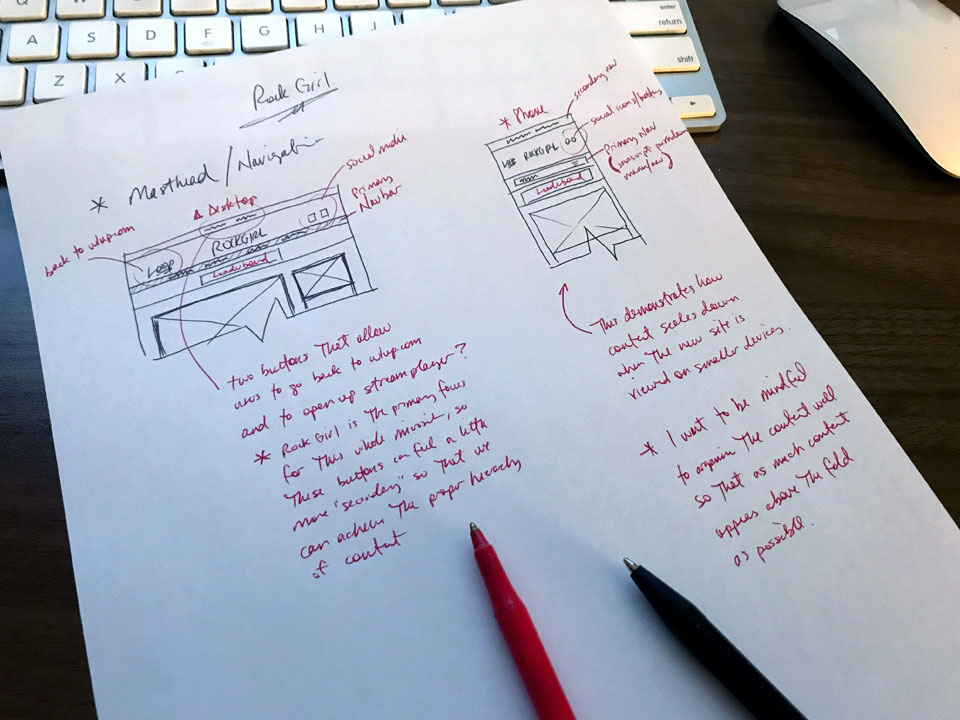 A S D F G
Z X
enter
return
shift
Rock Girl
* Masthead / Navigation
Desktop
social media
Primary
Navbar
back to wlup.com
LOOP
ROCKGIRL
Leaderboard
two buttons that allow
users to go back to wlup.com
and to open up stream player?
* Rock Girl is the primary focus
for this whole minisite, so
These buttons can feel a little
more "secondary" so that we
can achieve the proper hierarchy
of content
* Phone
secondary nav
social icons/
Primary Nav
(javascript
menu/nav)
LOOP ROCKGIRL
Leaderboard
This demonstrates how
content scales down
when the new site is
viewed on smaller devices.
* I want to be mindful
to organize the content well
so that as much content
appears above the fold
as possible.